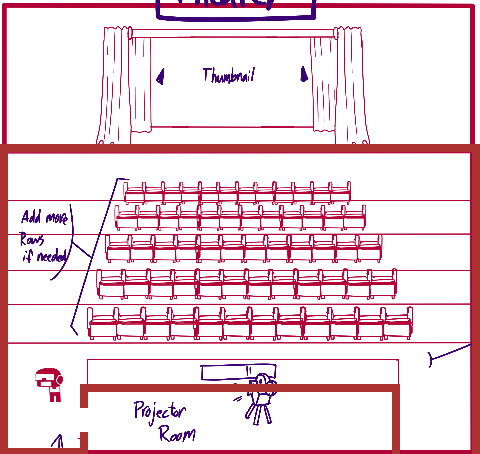 Thumbnail
Add more
Rows
if needed
Projector
Room